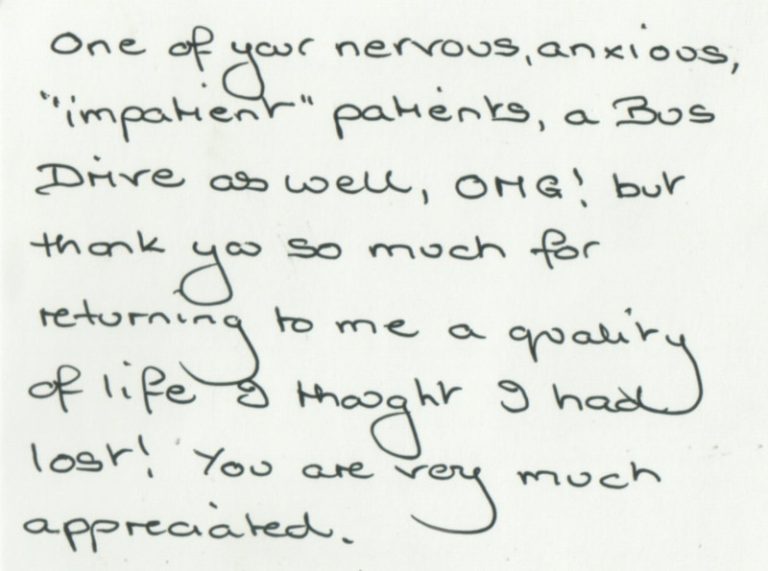 One of your nervous, anxious,
"impatient" patients, a Bus
Drive as well, OMG! but
thank you so much for
returning to me a quality
of life I thought I had
lost! You are very much
appreciated.